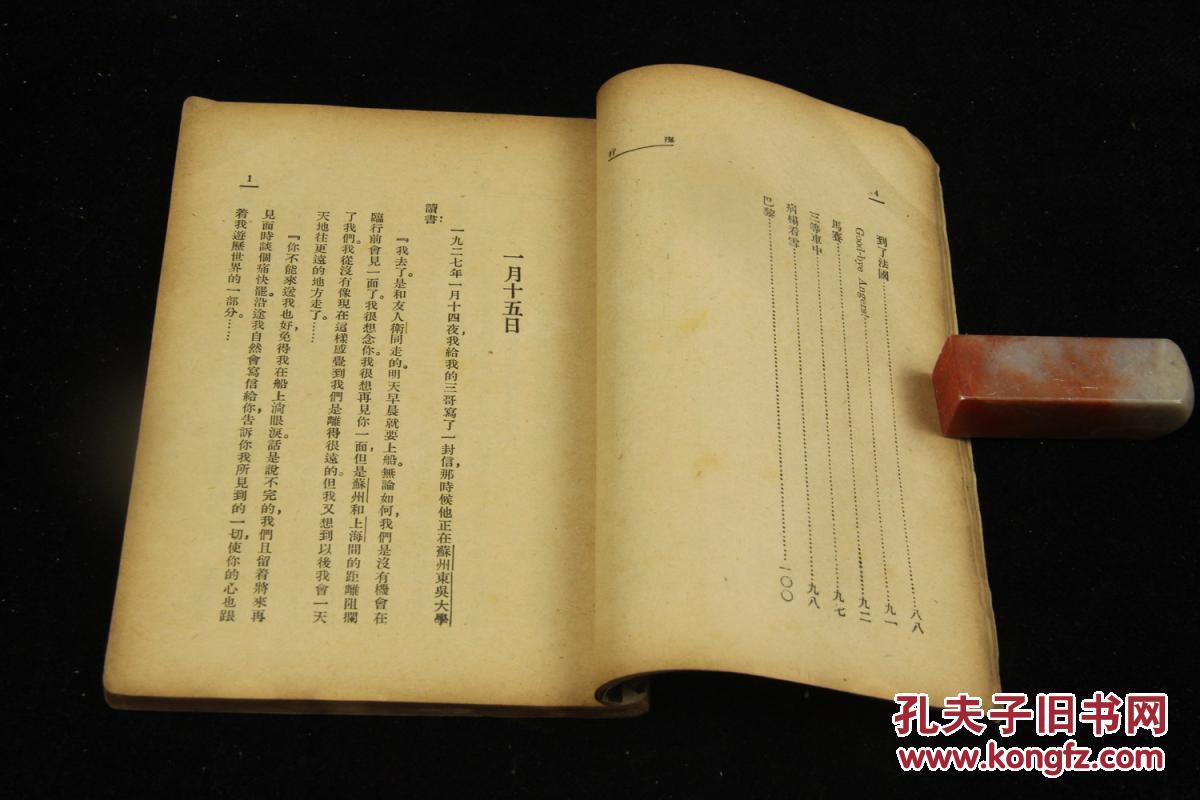 4
海行
到了法國……八八
Good-bye Angers!……九一
馬賽……九二
三等車中……九七
病榻看雪……九八
巴黎……一〇〇
一月十五日
一九二七年一月十四夜,我給我的三哥寫了一封信,那時候他正在蘇州東吳大學
讀書:
『我去了。是和友人衛同走的。明天早晨就要上船。無論如何,我們是沒有機會在
臨行前會見一面了。我很想念你。我很想再見你一面,但是蘇州和上海間的距離阻攔
了我們。我從沒有像現在這樣感覺到我們是離得很遠的。但我又想到以後我會一天
天地往更遠的地方走了。……
『你不能來送我也好,免得我在船上淌眼淚。話是說不完的,我們且留着將來再
見面時談個痛快罷。沿途我自然會寫信給你,告訴你我所見到的一切,使你的心也跟
着我遊歷世界的一部分。……
1
孔夫子旧书网
www.kongfz.com